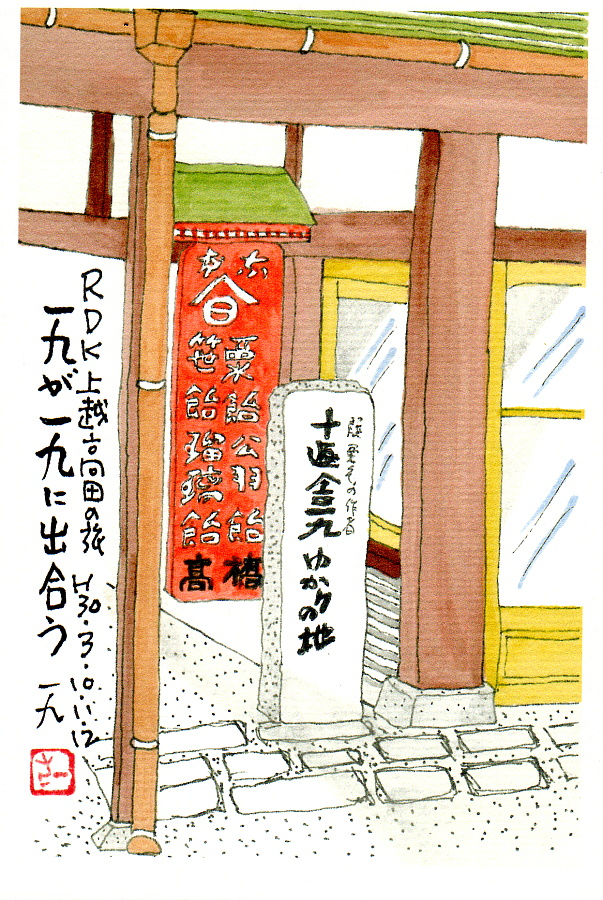 膝栗毛の作者
十返舎一九ゆかりの地
粟飴翁飴
笹飴瑠璃飴
髙橋
RDK上越高田の旅 H30.3.10.11.12
一九が一九に出合う 一九